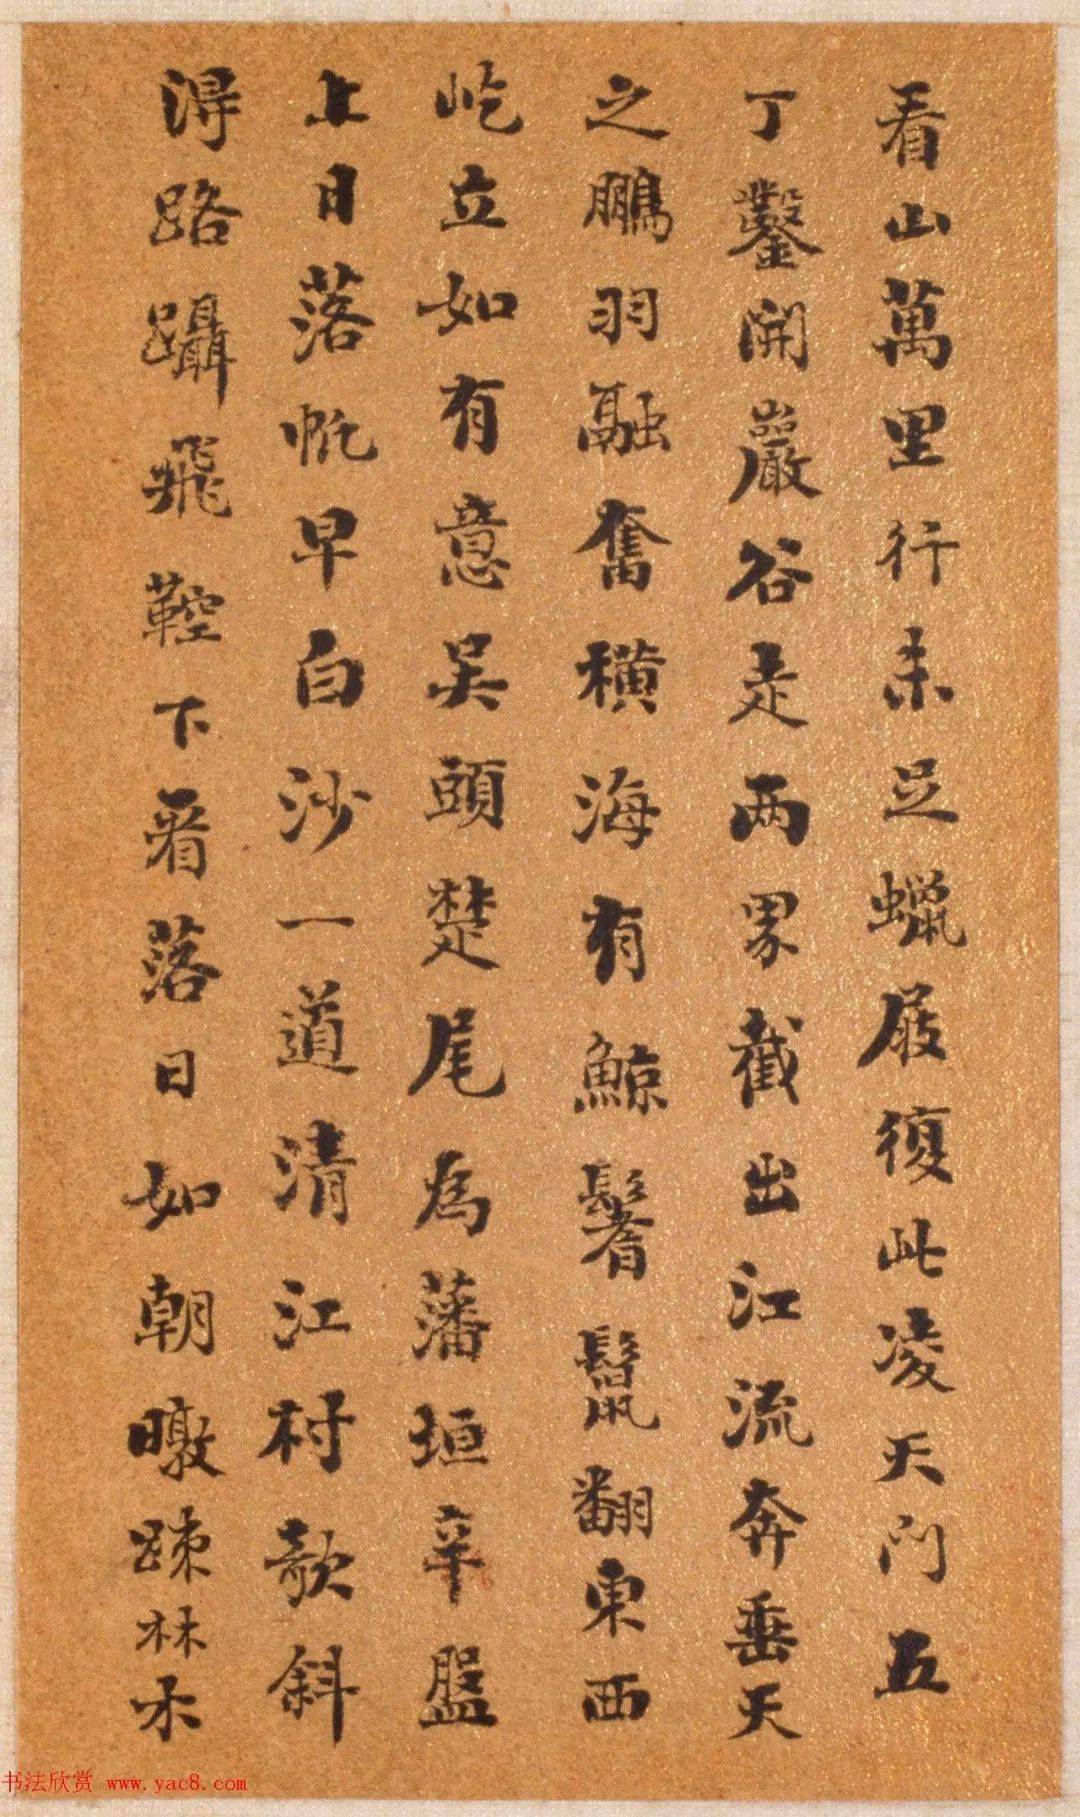 看山萬里行未足蠟屐復此凌天門五
丁鑿開巖谷走两界截出江流奔垂天
之鵬羽融奮橫海有鯨鬐鬣翻東西
屹立如有意吴頭楚尾為藩垣辛盤
上日落帆早白沙一道清江村欹斜
淂路躡飛鞚下看落日如朝暾踈林木
书法欣赏 www.yac8.com